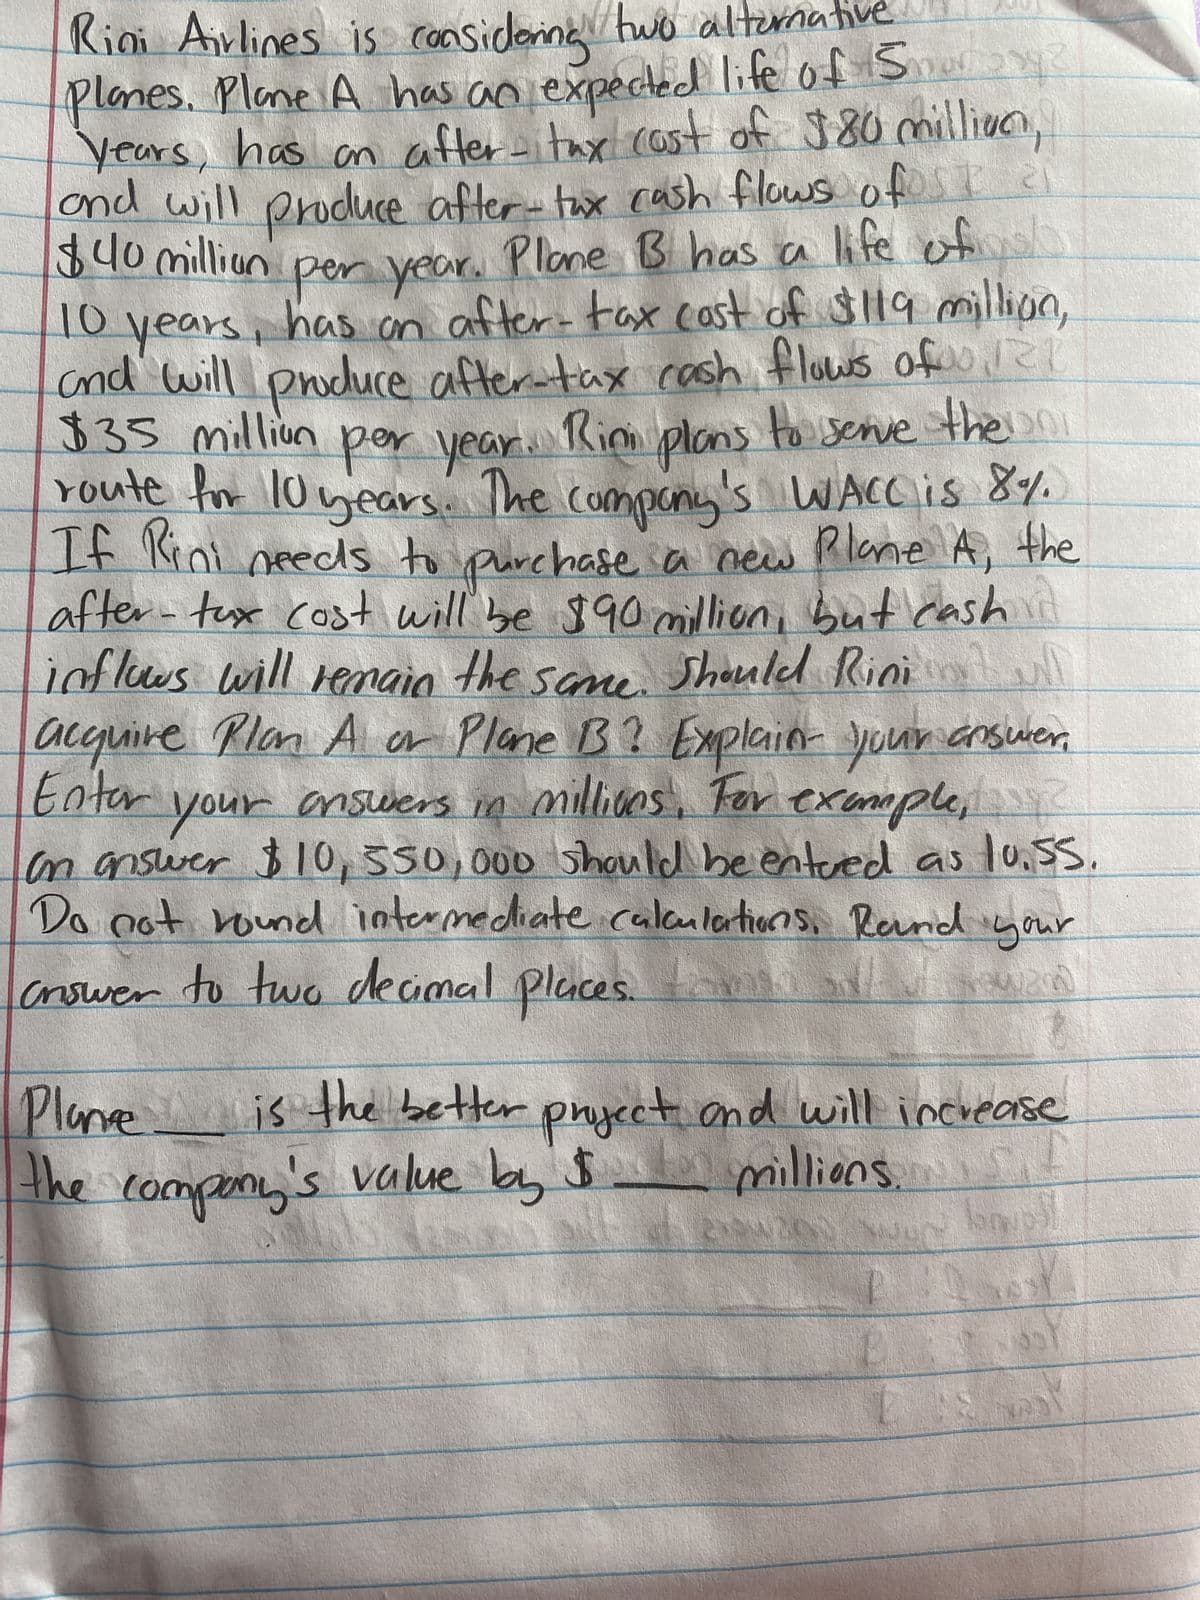 Rini Airlines is considering two alternative
planes. Plane A has an expected life of 5
years, has an after-tax cost of $80 million,
and will produce after-tax cash flows of
$40 million per year. Plane B has a life of
10 years, has an after-tax cost of $119 million,
and will produce after-tax cash flows of
$35 million per year. Rini plans to serve the
route for 10 years. The company's WACC is 8%.
If Rini needs to purchase a new Plane A, the
after-tax cost will be $90 million, but cash
inflows will remain the same. Should Rini
acquire Plan A or Plane B? Explain your answer.
Enter your answers in millions. For example,
an answer $10,550,000 should be entered as 10.55.
Do not round intermediate calculations. Round your
answer to two decimal places.
Plane __ is the better project and will increase
the company's value by $ __ millions.